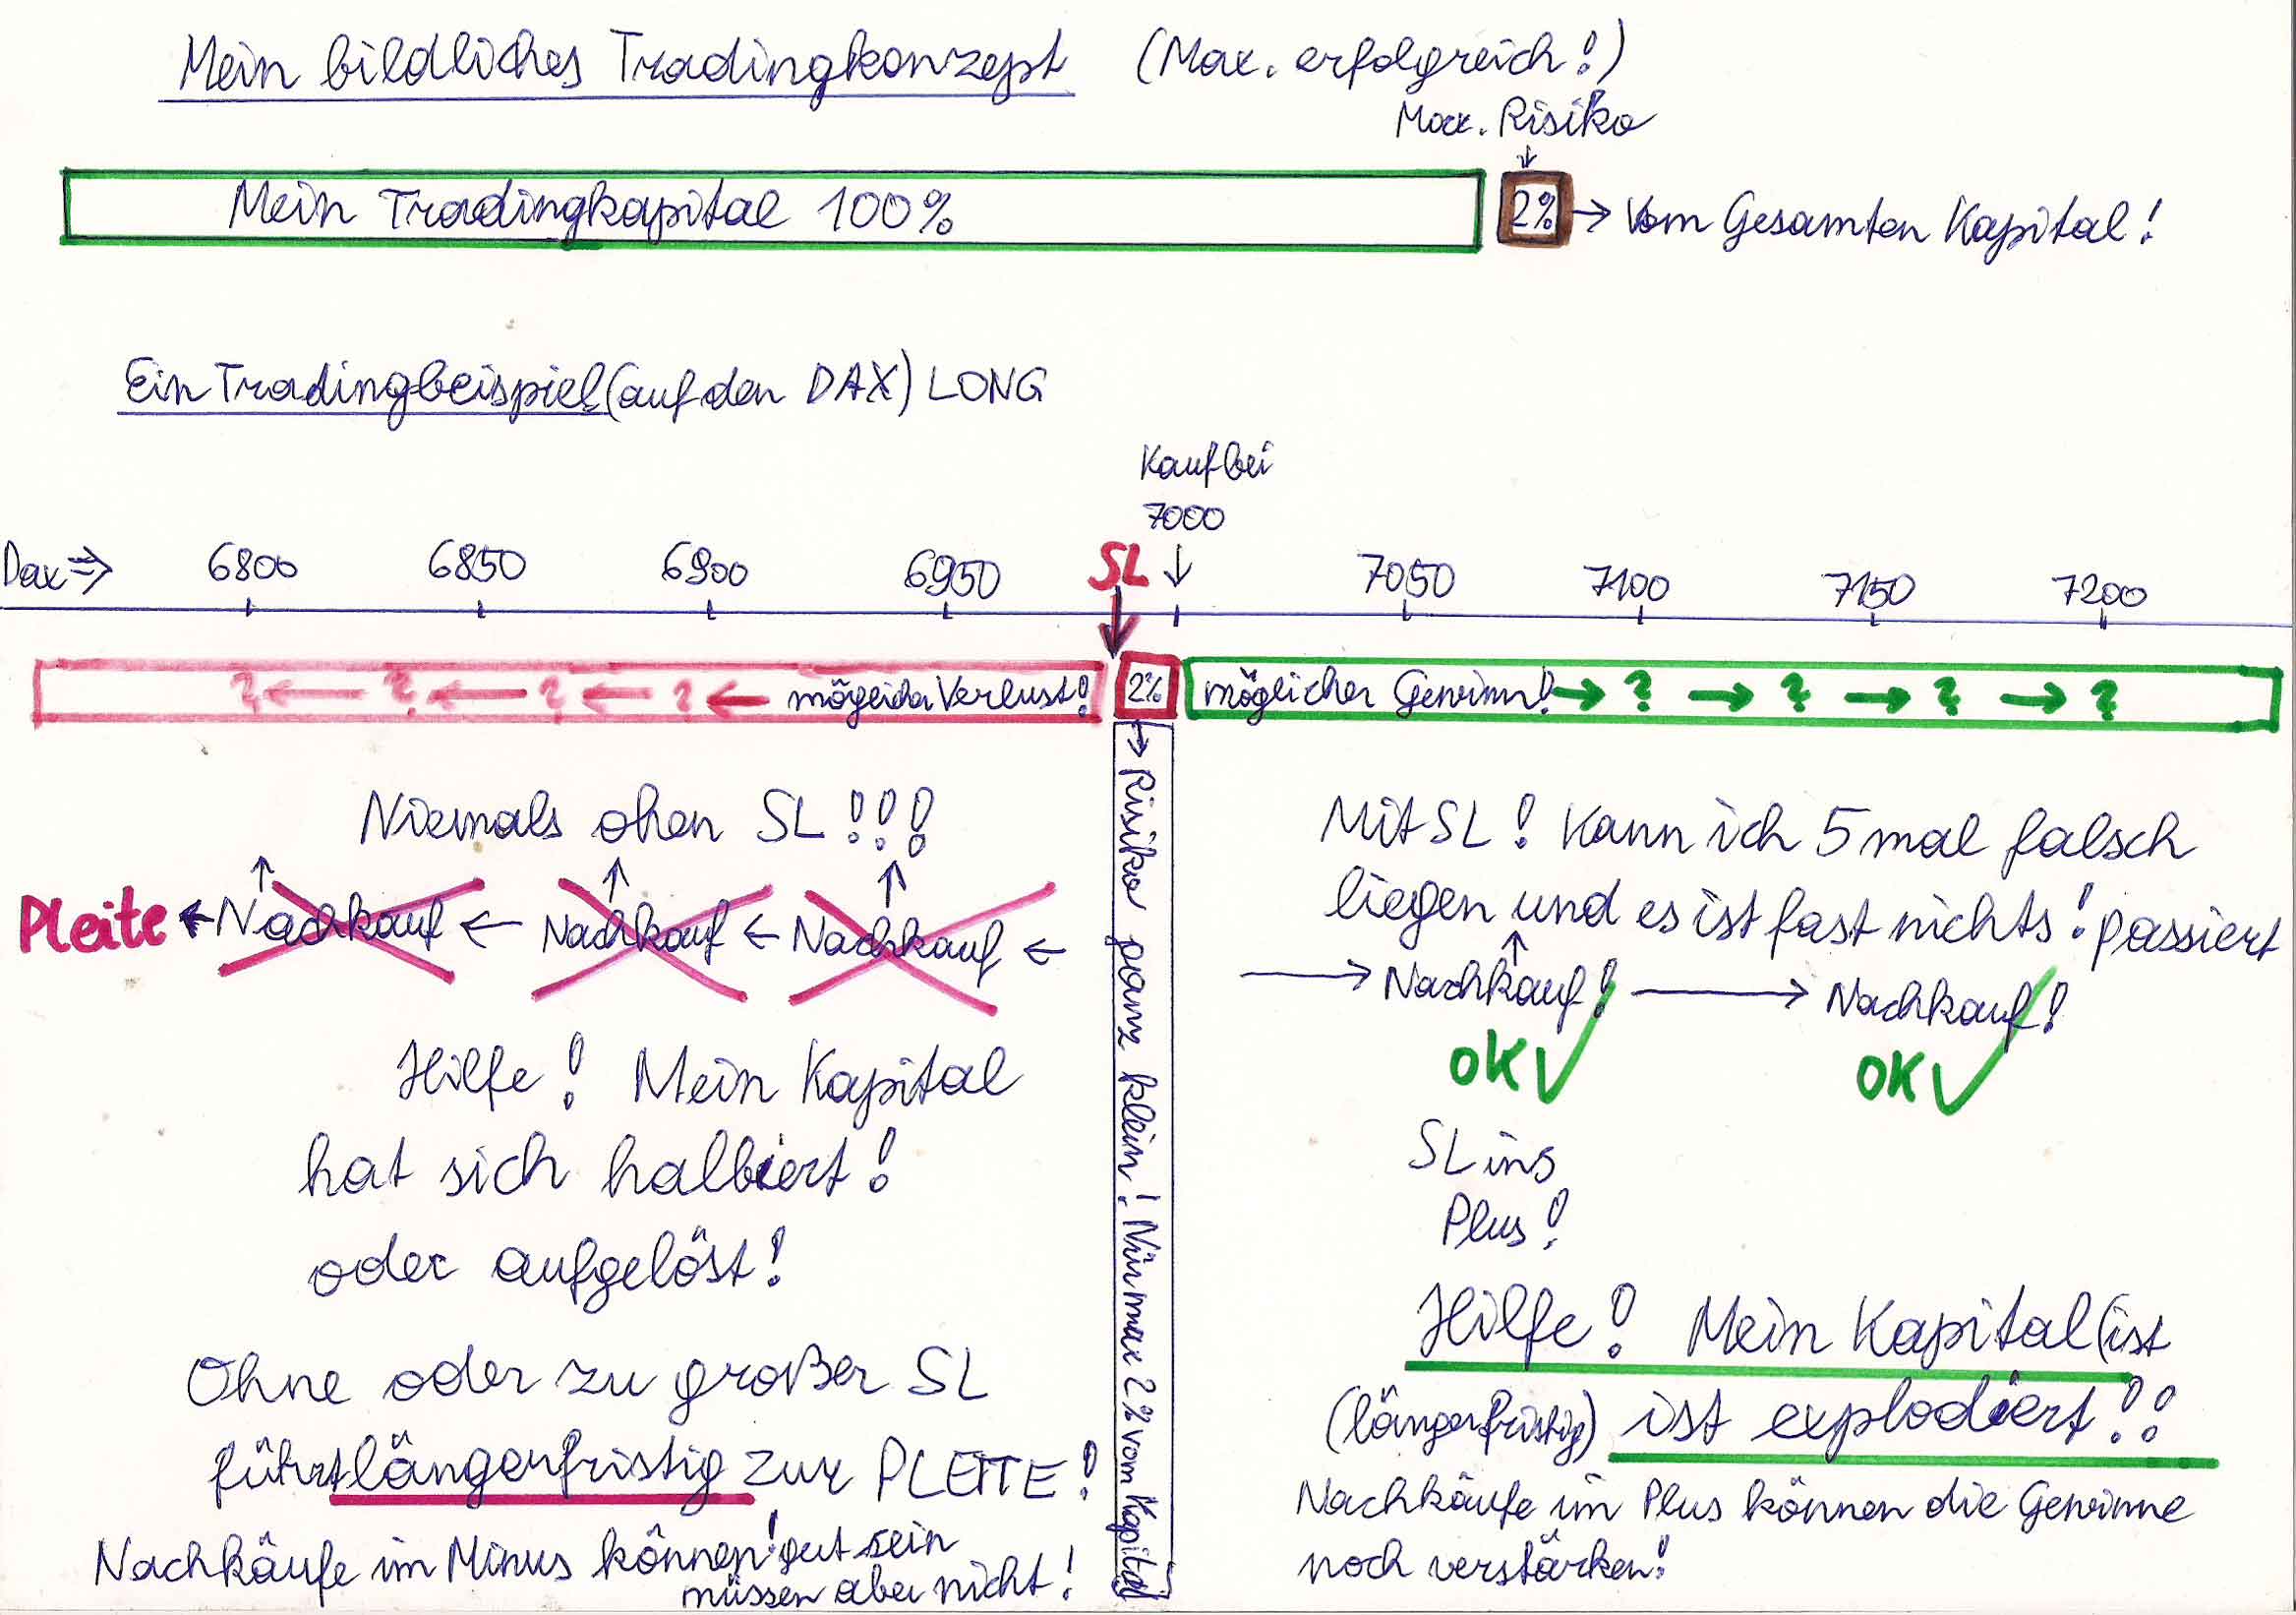 Mein bildliches Tradingkonzept (Max. erfolgreich!)
Max. Risiko
↓
Mein Tradingkapital 100% 2% → Vom Gesamten Kapital!
Ein Tradingbeispiel (auf den DAX) LONG
Kauf bei
7000
Dax ⇒ 6800 6850 6900 6950 SL ↓ 7050 7100 7150 7200
? ← ? ← ? ← ? ← möglicher Verlust! 2% möglicher Gewinn! → ? → ? → ? → ?
Niemals ohen SL!!!
Pleite ← Nachkauf ← Nachkauf ← Nachkauf ←
Hilfe! Mein Kapital
hat sich halbiert!
oder aufgelöst!
Ohne oder zu großer SL
führt längerfristig zur PLEITE!
Nachkäufe im Minus können! gut sein
müssen aber nicht!
→ Risiko ganz klein! Nur max 2% vom Kapital
Mit SL! Kann ich 5 mal falsch
liegen und es ist fast nichts! passiert
→ Nachkauf! → Nachkauf!
OK✓ OK✓
SL ins
Plus!
Hilfe! Mein Kapital (ist
(längerfristig) ist explodiert!!
Nachkäufe im Plus können die Gewinne
noch verstärken!